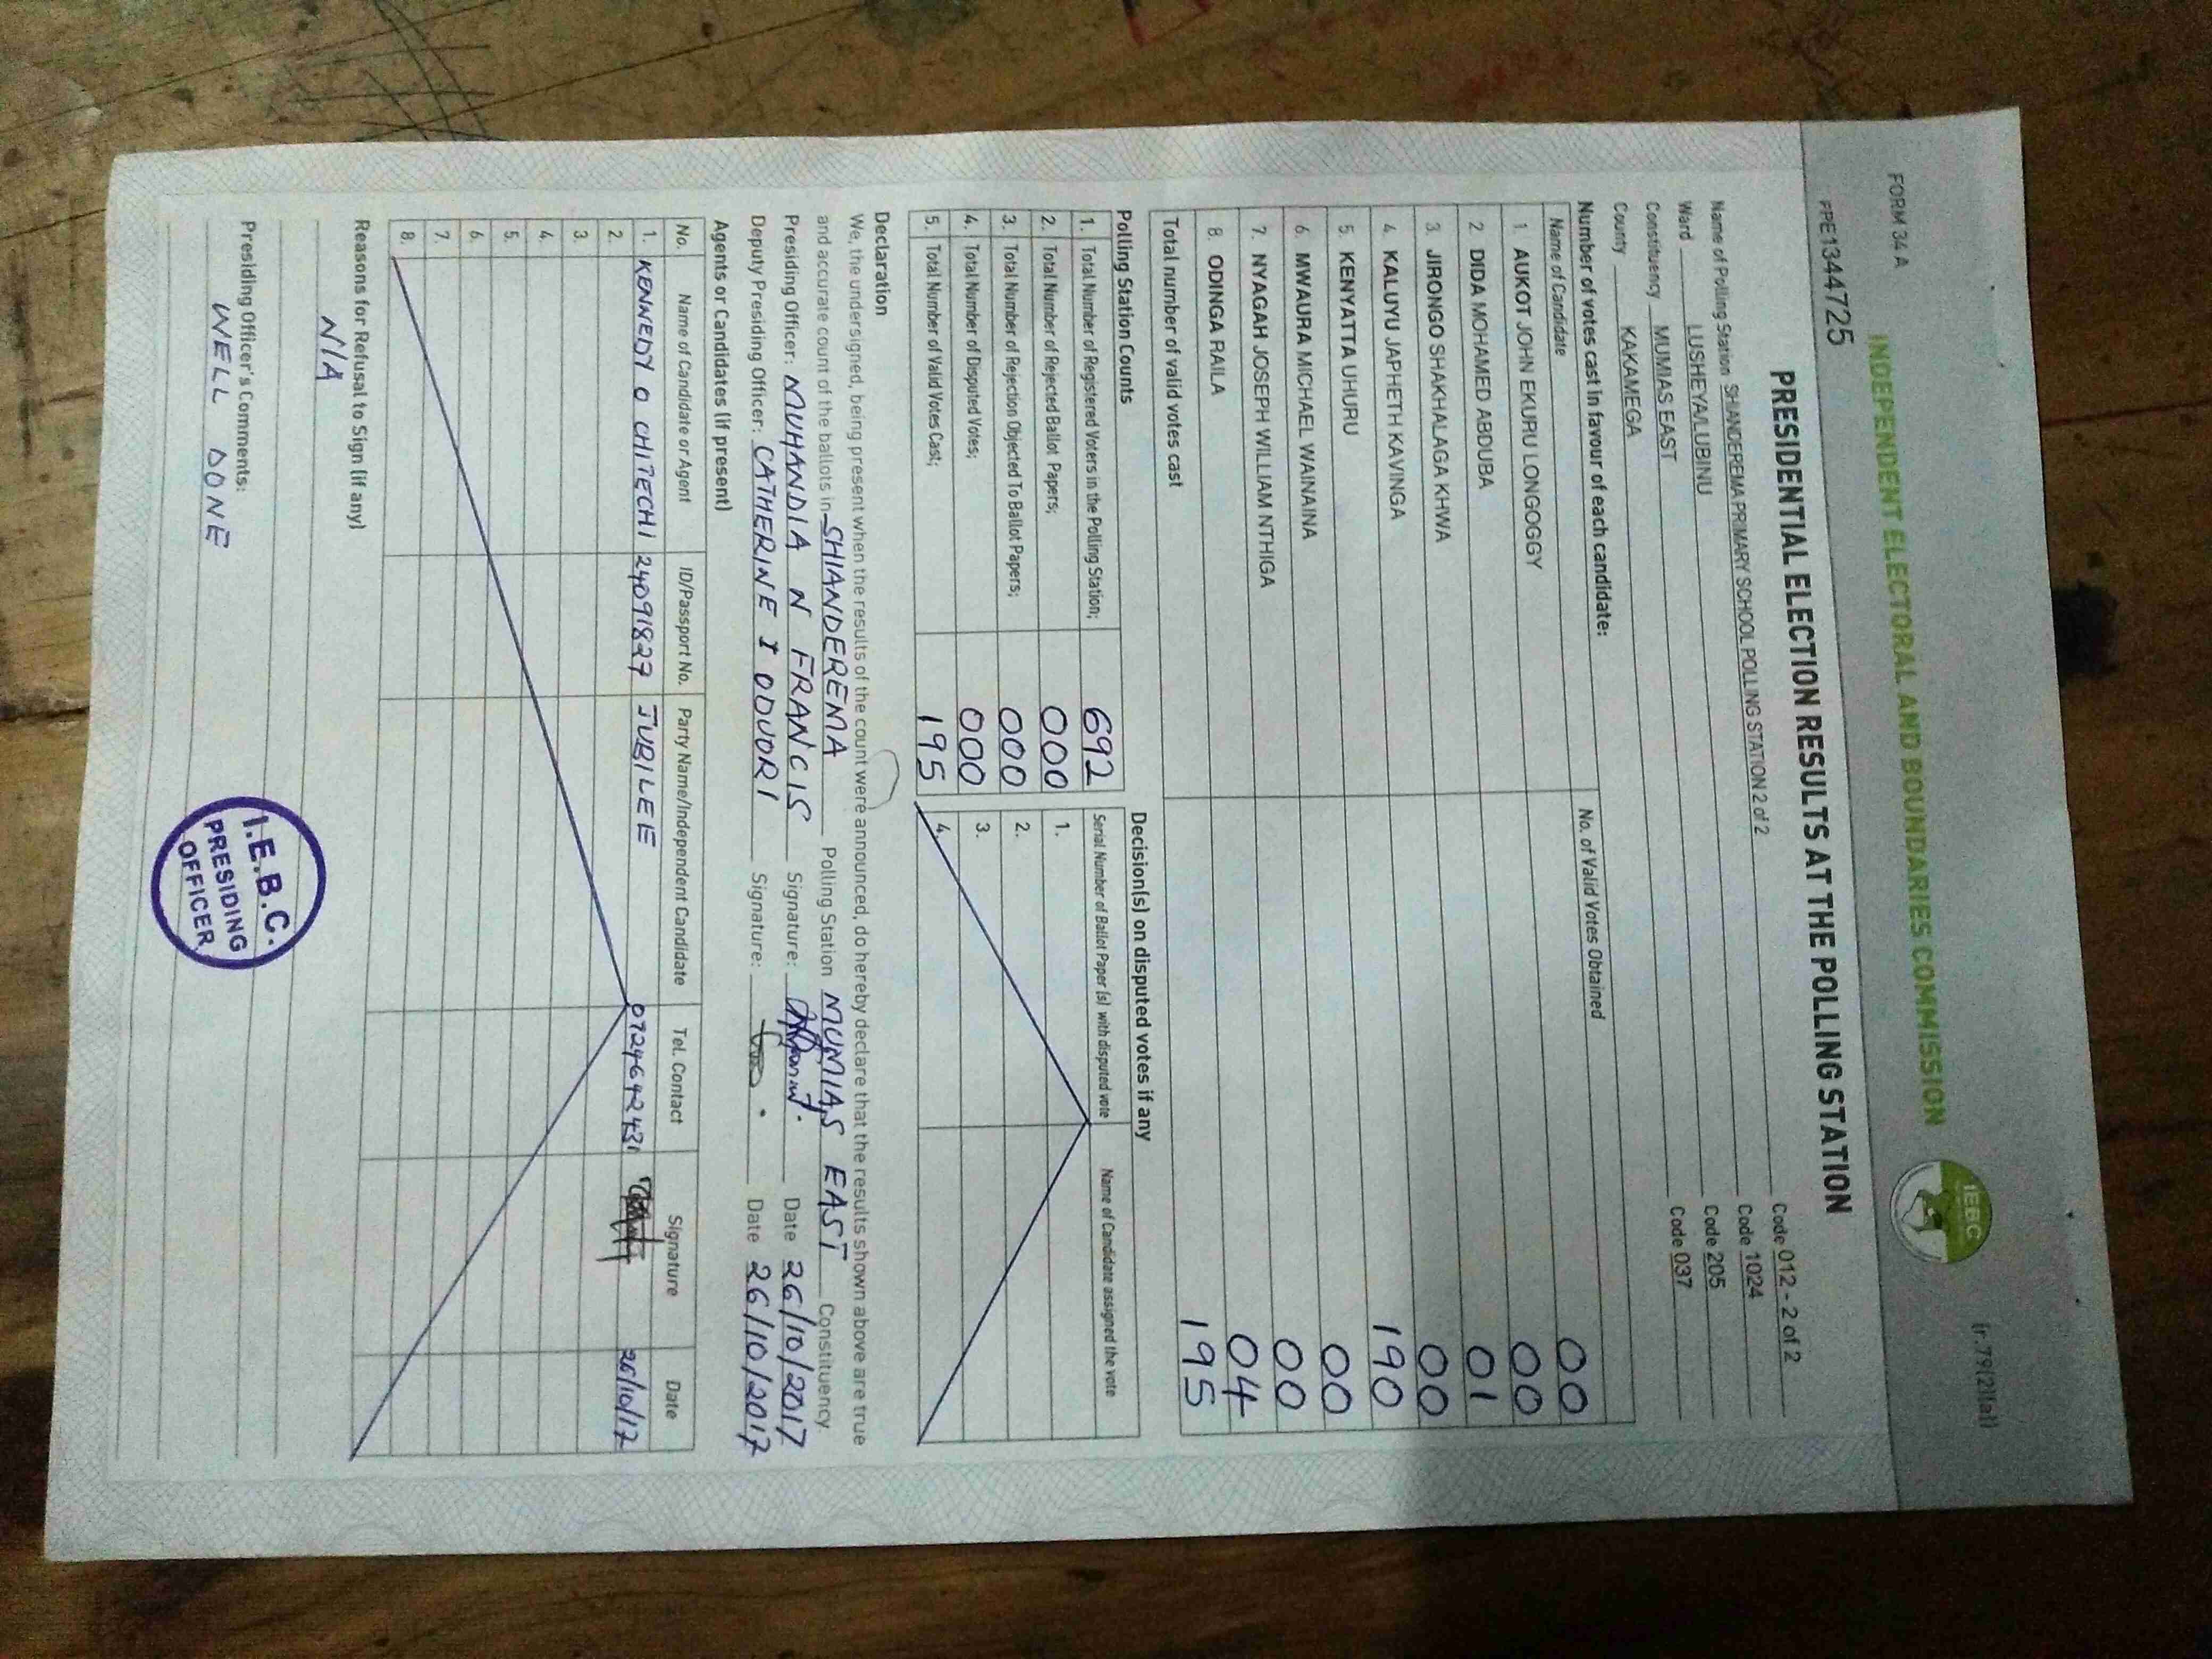 FORM 34 A
(r.79(2)(a))
INDEPENDENT ELECTORAL AND BOUNDARIES COMMISSION
IEBC
PPE1344725
PRESIDENTIAL ELECTION RESULTS AT THE POLLING STATION
Name of Polling Station SHANDEREMA PRIMARY SCHOOL POLLING STATION 2 of 2 Code 012 - 2 of 2
Ward LUSHEYA/LUBINU Code 1024
Constituency MUMIAS EAST Code 205
County KAKAMEGA Code 037
Number of votes cast in favour of each candidate:
Name of Candidate No. of Valid Votes Obtained
1. AUKOT JOHN EKURU LONGOGGY 00
2 DIDA MOHAMED ABDUBA 00
3. JIRONGO SHAKHALAGA KHWA 01
4. KALUYU JAPHETH KAVINGA 00
5. KENYATTA UHURU 190
6. MWAURA MICHAEL WAINAINA 00
7. NYAGAH JOSEPH WILLIAM NTHIGA 00
8. ODINGA RAILA 04
Total number of valid votes cast 195
Polling Station Counts
1. Total Number of Registered Voters in the Polling Station; 692
2. Total Number of Rejected Ballot Papers; 000
3. Total Number of Rejection Objected To Ballot Papers; 000
4. Total Number of Disputed Votes; 000
5. Total Number of Valid Votes Cast; 195
Decision(s) on disputed votes if any
Serial Number of Ballot Paper (s) with disputed vote Name of Candidate assigned the vote
1.
2.
3.
4.
Declaration
We, the undersigned, being present when the results of the count were announced, do hereby declare that the results shown above are true
and accurate count of the ballots in SHIANDEREMA Polling Station MUMIAS EAST Constituency
Presiding Officer: MUHANDIA N FRANCIS Signature: Date 26/10/2017
Deputy Presiding Officer: CATHERINE I ODUORI Signature: Date 26/10/2017
Agents or Candidates (if present)
No. Name of Candidate or Agent ID/Passport No. Party Name/Independent Candidate Tel. Contact Signature Date
1. KENNEDY O CHITECHI 24091827 JUBILEE 0724642431 26/10/17
2.
3.
4.
5.
6.
7.
8.
Reasons for Refusal to Sign (if any)
N/A
Presiding Officer's Comments:
WELL DONE
I.E.B.C.
PRESIDING
OFFICER